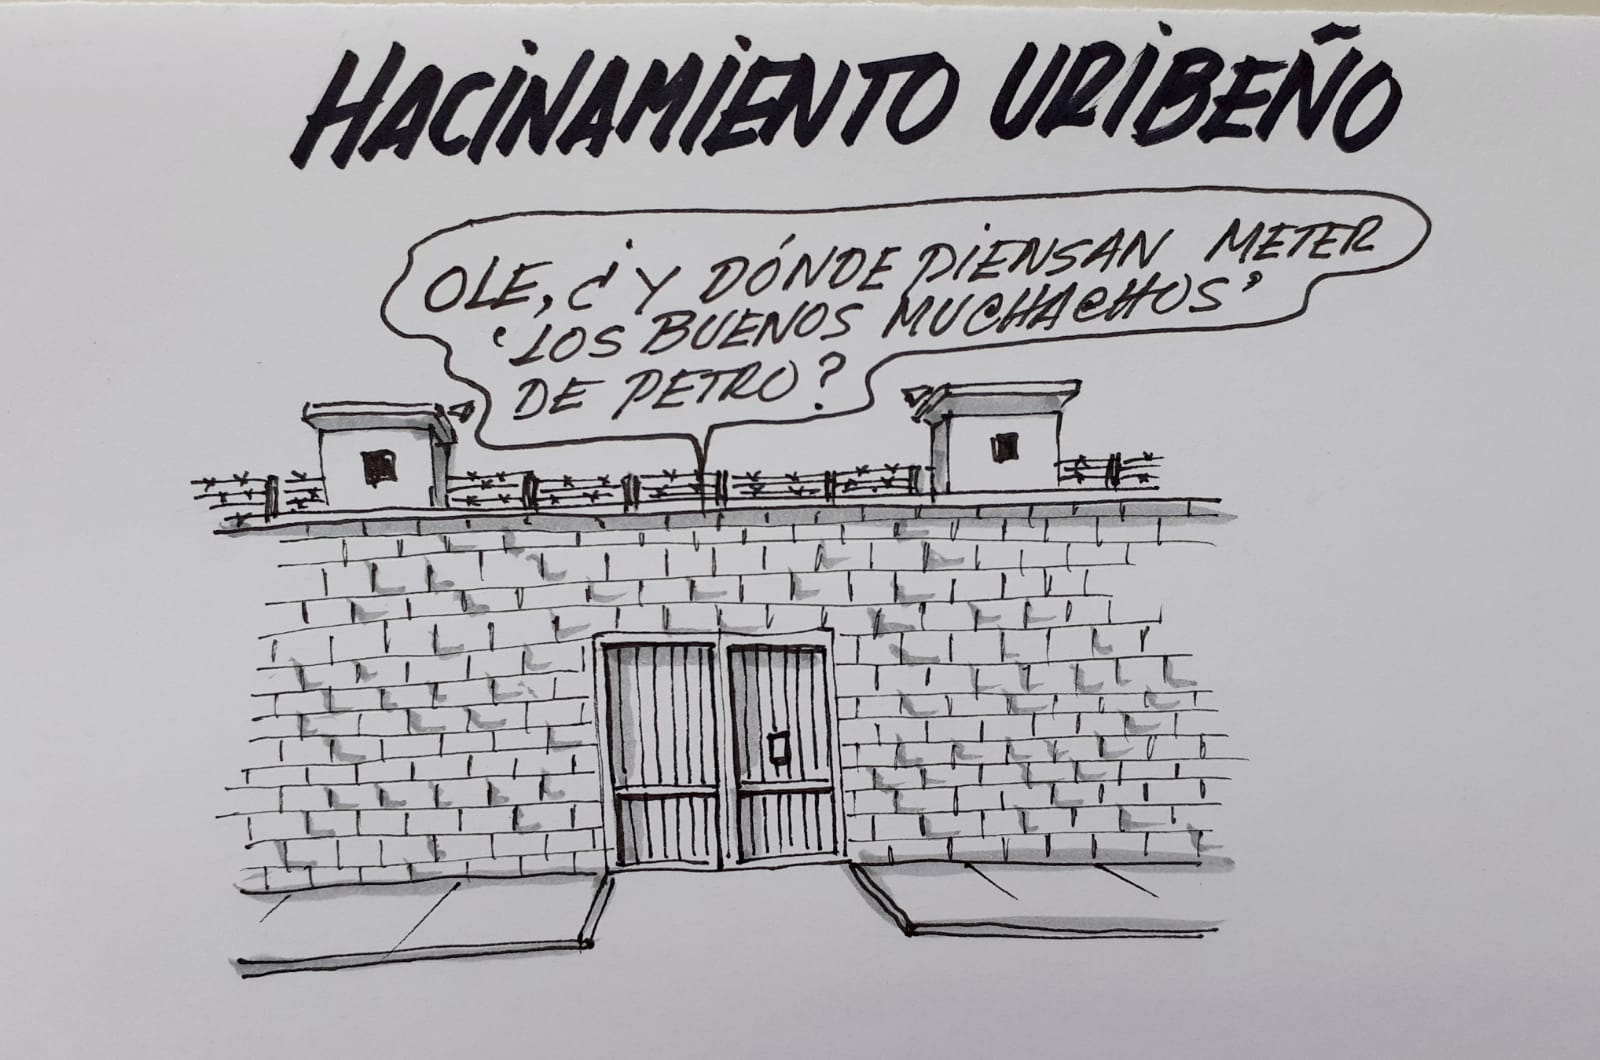 HACINAMIENTO URIBEÑO
OLE, ¿Y DÓNDE PIENSAN METER
'LOS BUENOS MUCHACHOS'
DE PETRO?